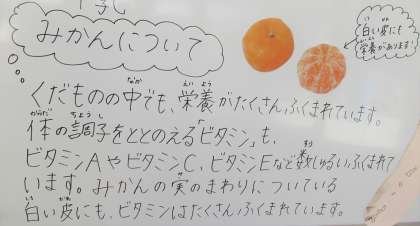 みかんについて
白い皮にも
栄養があります!
しろ
かわ
なか
えいよう
くだものの中でも、栄養がたくさんふくまれています。
からだ
ちょうし
体の調子をととのえる「ビタミン」も、
ビタミンAやビタミンC、ビタミンEなど数しゅるいふくまれて
います。みかんの実のまわりについている
白い皮にも、ビタミンはたくさんふくまれています。